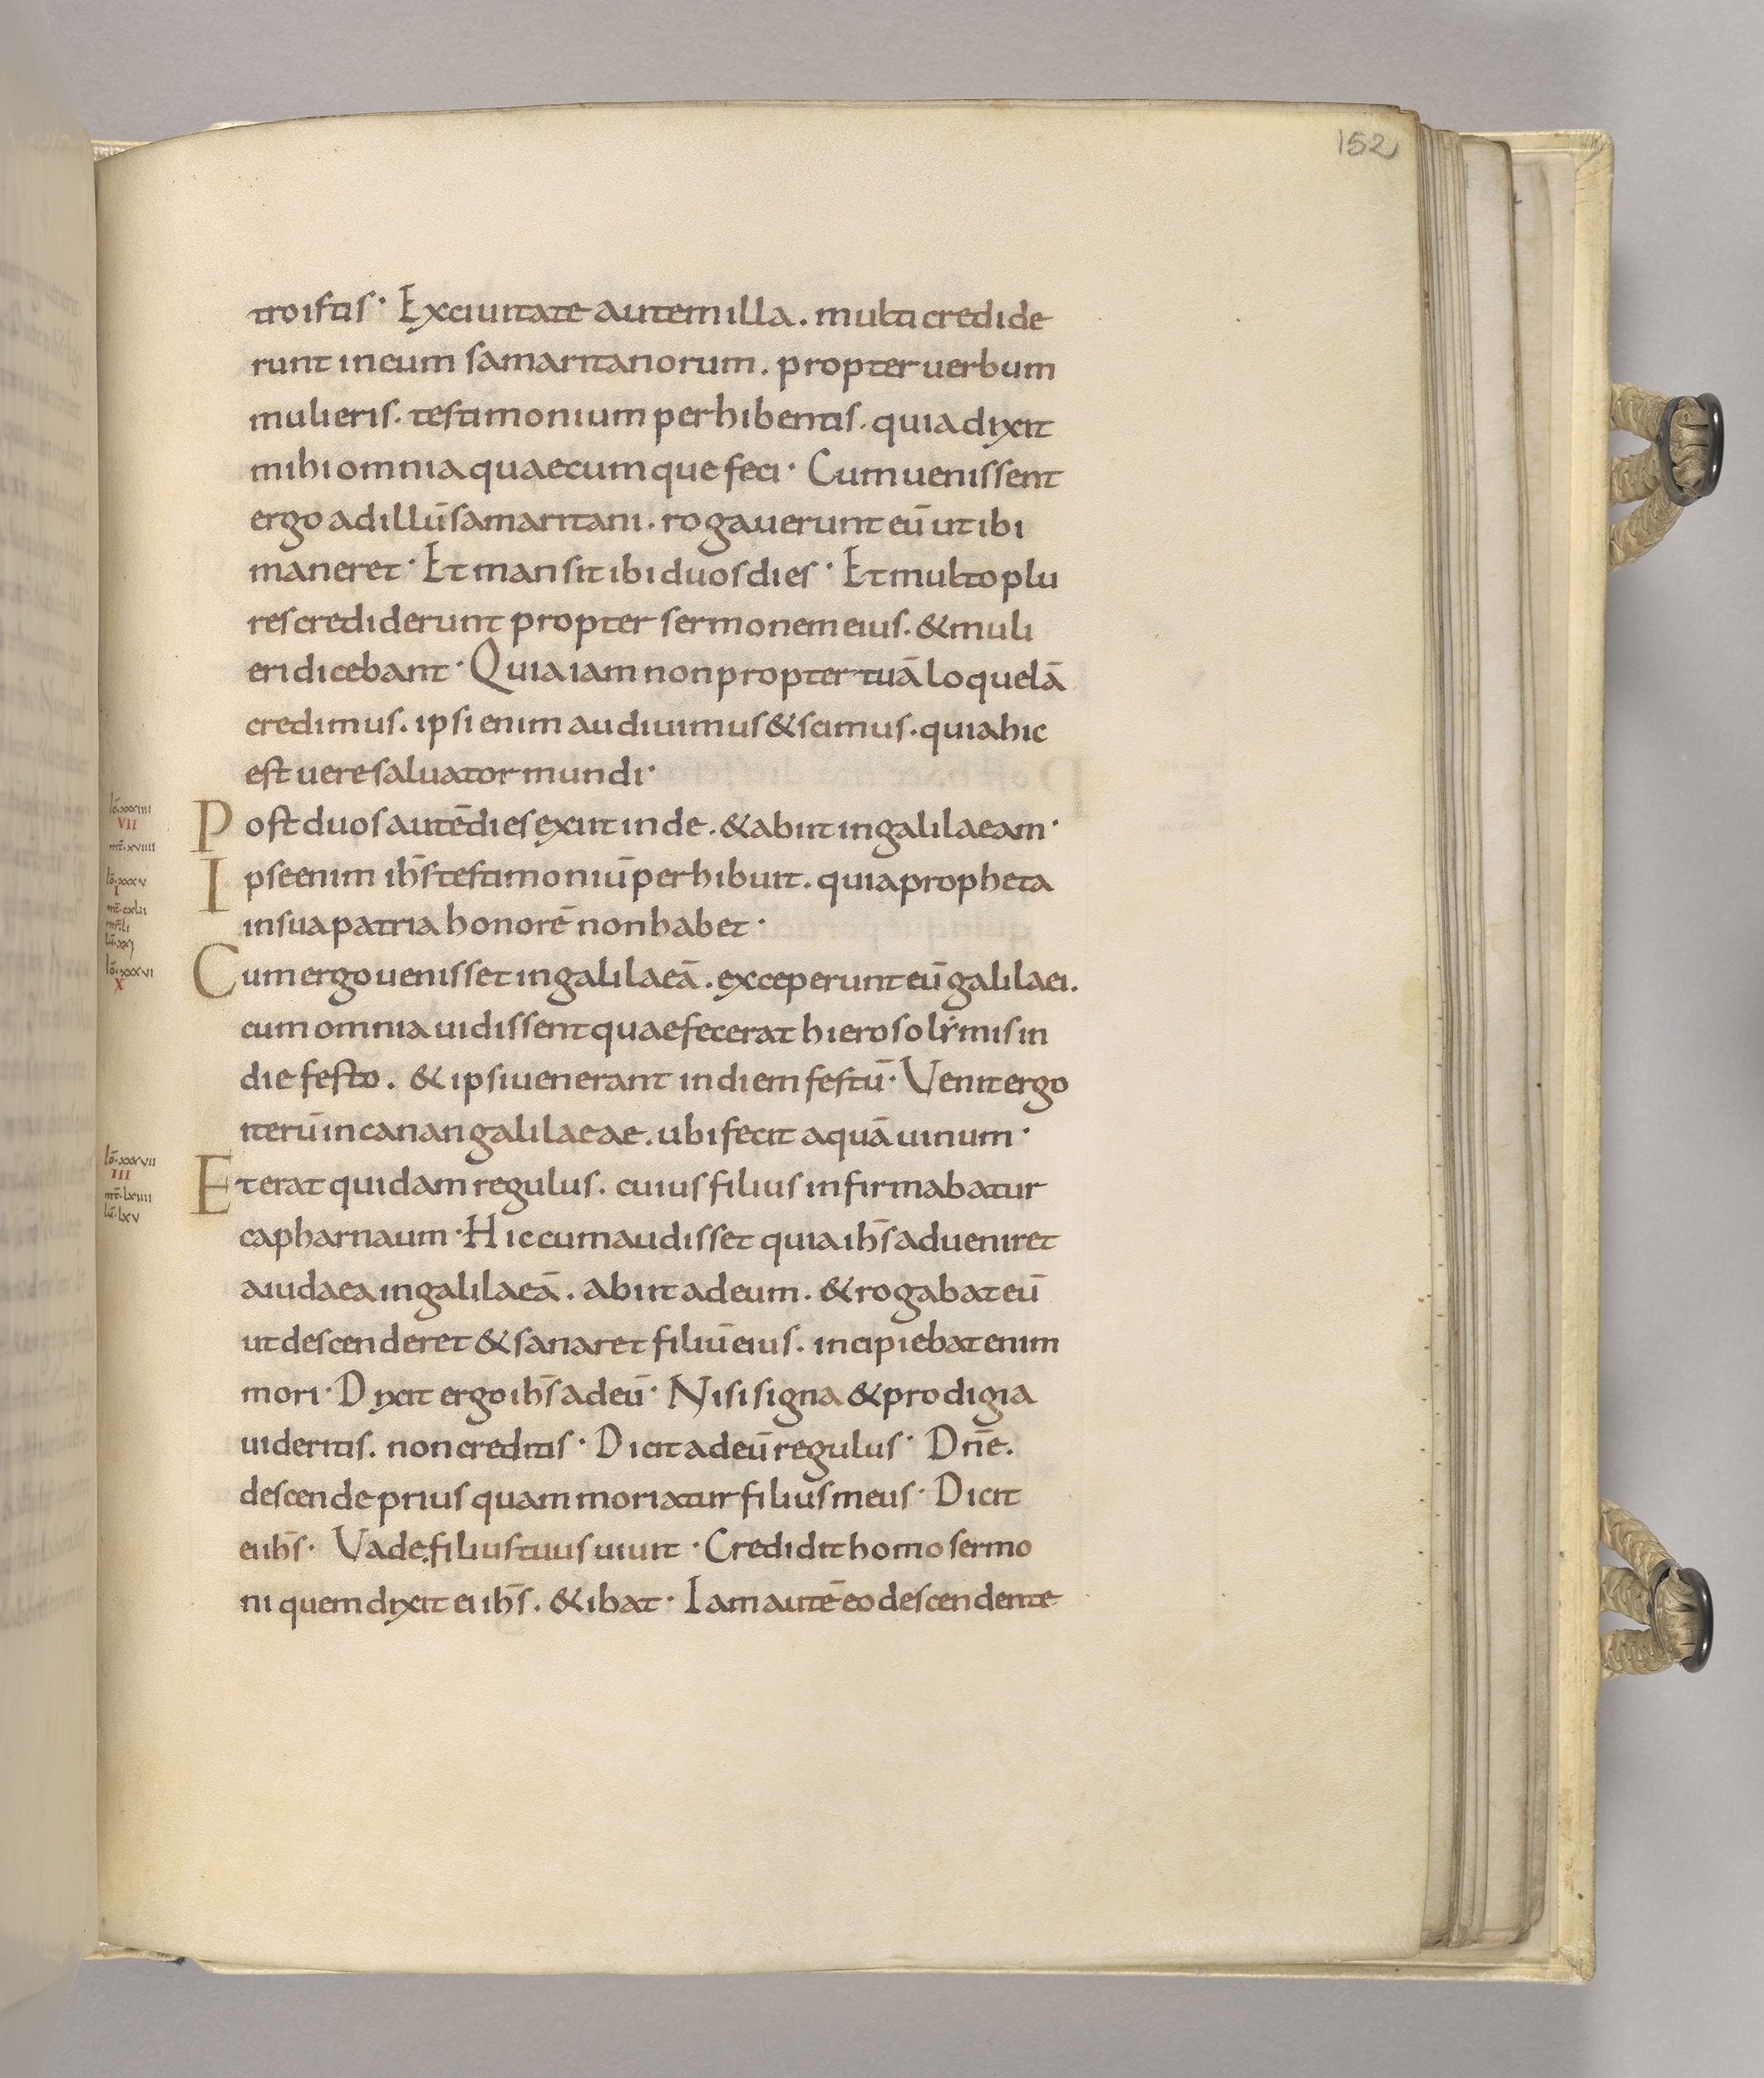 152
troistis· Ex ciuitate autem illa. multi credide
runt in eum samaritanorum. propter uerbum
mulieris. testimonium perhibentis. quia dixit
mihi omnia quaecumque feci· Cum uenissent
ergo ad illū samaritani. rogauerunt eū ut ibi
maneret· Et mansit ibi duos dies· Et multo plu
res crediderunt propter sermonem eius. & muli
eri dicebant· Quia iam non propter tuā loquelā
credimus. ipsi enim audiuimus & scimus. quia hic
est uere saluator mundi·
lō·xxxiiii
VII
mt̄·xviiii
Post duos autē dies exiit inde. & abiit in galilaeam·
lō·xxxv
I
mt̄·cxlii
mr̄·li
lū·xxi
Ipse enim ih̄s testimoniū perhibuit. quia propheta
in sua patria honorē non habet·
lō·xxxvi
X
Cum ergo uenisset in galilaeā. exceperunt eū galilaei.
cum omnia uidissent quae fecerat hierosolẏmis in
die festo. & ipsi uenerant in diem festū· Venit ergo
iterū in canan galilaeae. ubi fecit aquā uinum·
lō·xxxvii
III
mt̄·lxiiii
lū·lxv
Et erat quidam regulus. cuius filius infirmabatur
capharnaum· Hic cum audisset quia ih̄s adueniret
a iudaea in galilaeā. abiit ad eum. & rogabat eū
ut descenderet & sanaret filiū eius. incipiebat enim
mori· Dixit ergo ih̄s ad eū· Nisi signa & prodigia
uideritis. non creditis· Dicit ad eū regulus· Dn̄e.
descende prius quam moriatur filius meus· Dicit
ei ih̄s· Vade. filius tuus uiuit· Credidit homo sermo
ni quem dixit ei ih̄s. & ibat· Iam autē eo descendente